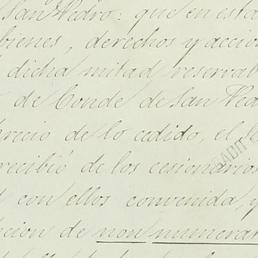 San Pedro: que en esta
bienes, derechos y accio
dicha mitad reservab
de Conde de San Ped
precio de lo cedido, el se
recibió de los cesionarios
con ellos convenida, y
cion de non numerat